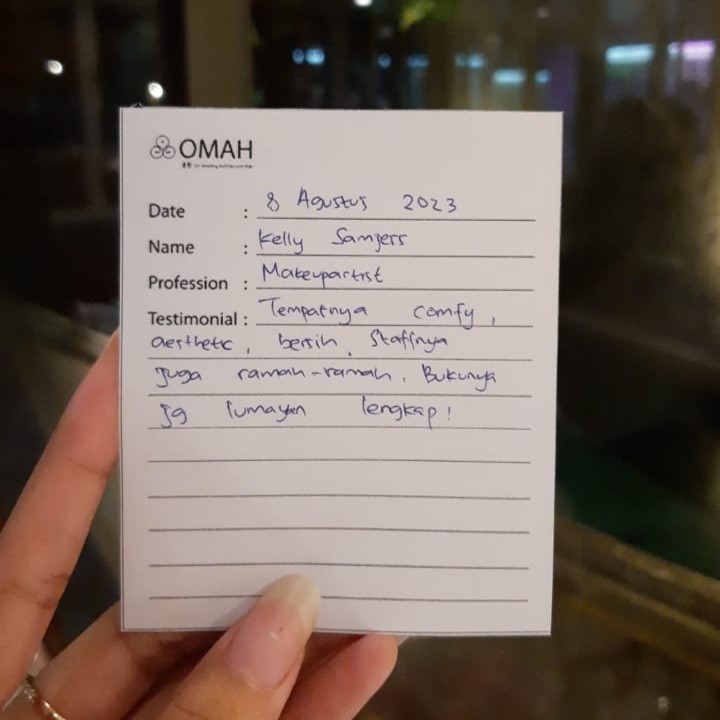 OMAH
Date : 8 Agustus 2023
Name : Kelly Sanjers
Profession : Makeupartist
Testimonial : Tempatnya comfy,
aesthetic, bersih. Staffnya
juga ramah-ramah. Bukunya
jg lumayan lengkap!